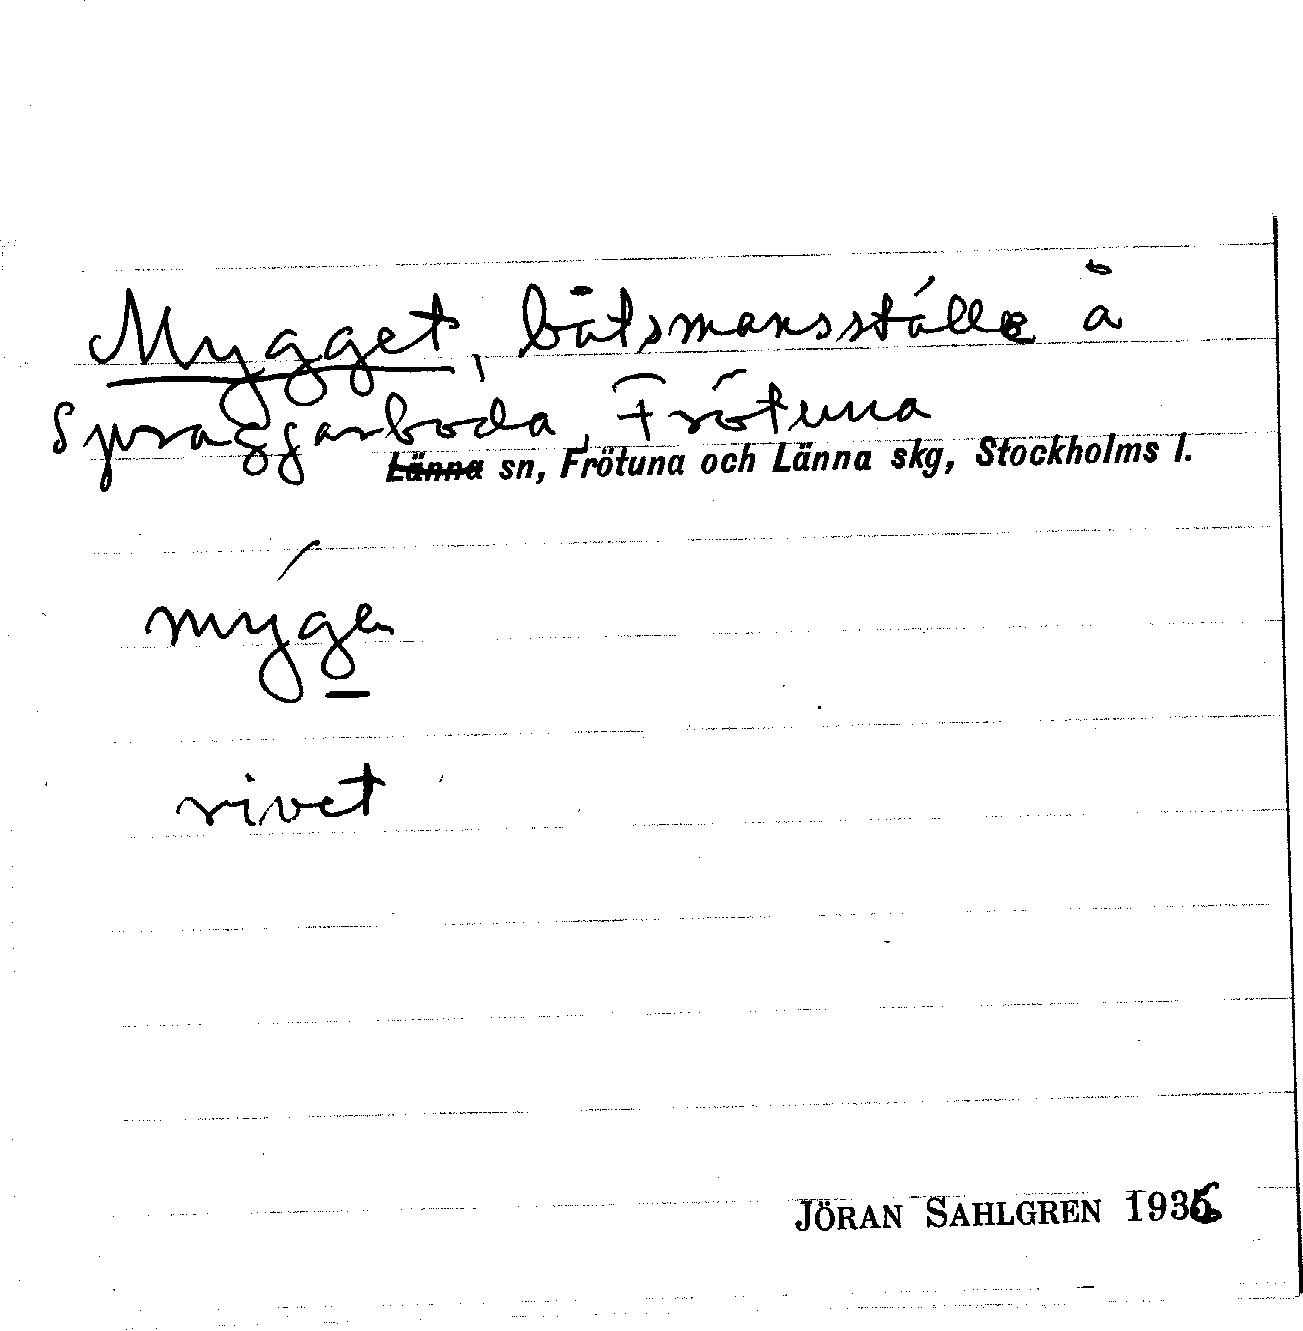 Mygget, båtsmansställe å
Spraggarboda, Frötuna
Länna sn, Frötuna och Länna skg, Stockholms l.
rivet
JÖRAN SAHLGREN 1936